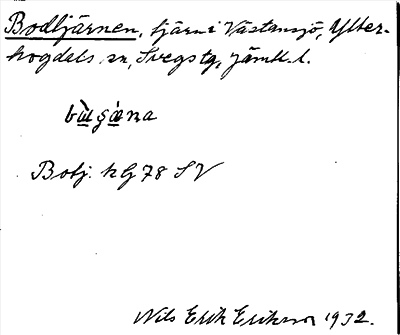 Bodtjärnen, tjärn i Västansjö, Ytter-
hogdals sn, Svegs tg, Jämtl. l.
bùgǽna
Botj. hG 78 SV
Nils Erik Eriksson 1932.